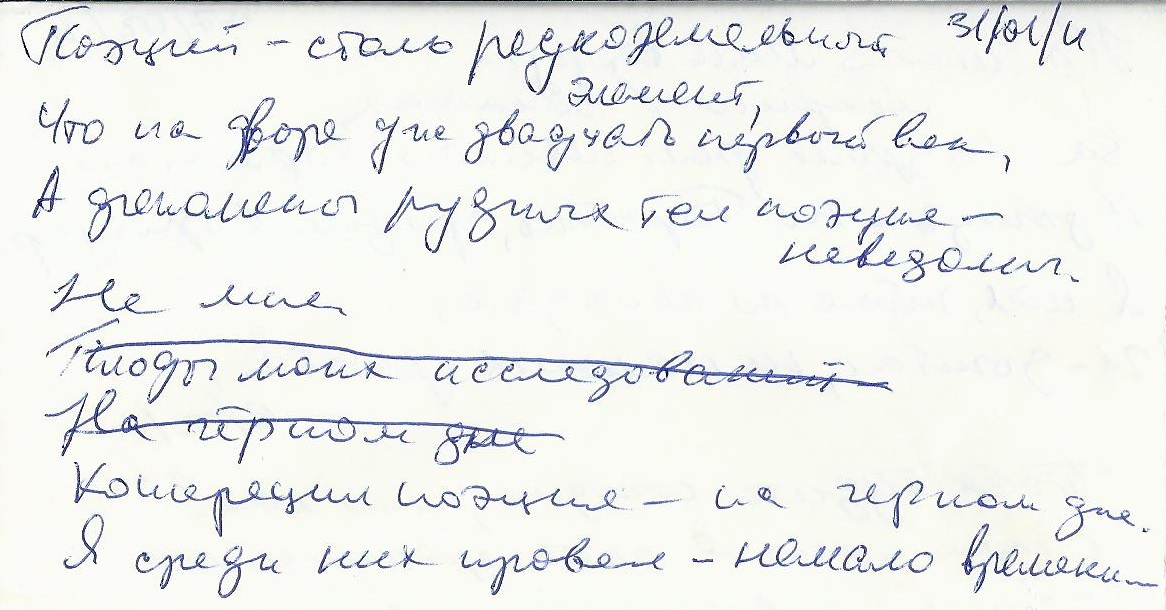 Поэций – столь редкоземельный 31/01/11
элемент,
Что на дворе уже двадцать первый век,
А феномены рудных тел поэция –
неведомы.
Не мне.
Плоды моих исследований
На чёрном дне
Конкреции поэция – на черном дне.
Я среди них провел – немало времени...